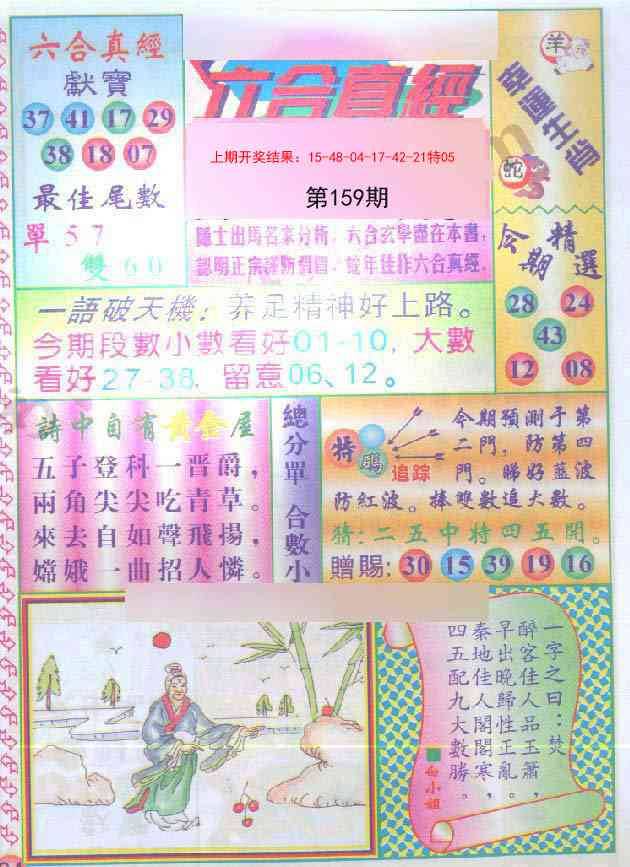 六合真經
獻寶
37 41 17 29
38 18 07
最佳尾數
單 5 7
雙 6 0
六合真經
上期开奖结果：15-48-04-17-42-21特05
第159期
隱士出馬名家分析，六合玄學盡在本書，
認明正宗謹防假冒，蛇年佳作六合真經。
羊
幸運生肖
蛇
今期精選
28 24
43
12 08
一語破天機：养足精神好上路。
今期段數小數看好01-10，大數
看好27-38，留意06、12。
詩中自有黃金屋
五子登科一晋爵，
兩角尖尖吃青草。
來去自如聲飛揚，
嫦娥一曲招人憐。
總分單 合數小
特
碼
追踪
今期預測于第
二門，防第四
門。睇好藍波
防紅波。棒雙數追大數。
猜：二五中特四五開。
贈賜：30 15 39 19 16
一字之曰：焚
醉客佳人品玉蕭，
早出晚歸性正亂，
秦地佳人閣閣寒，
四五配九大數勝。
白小姐